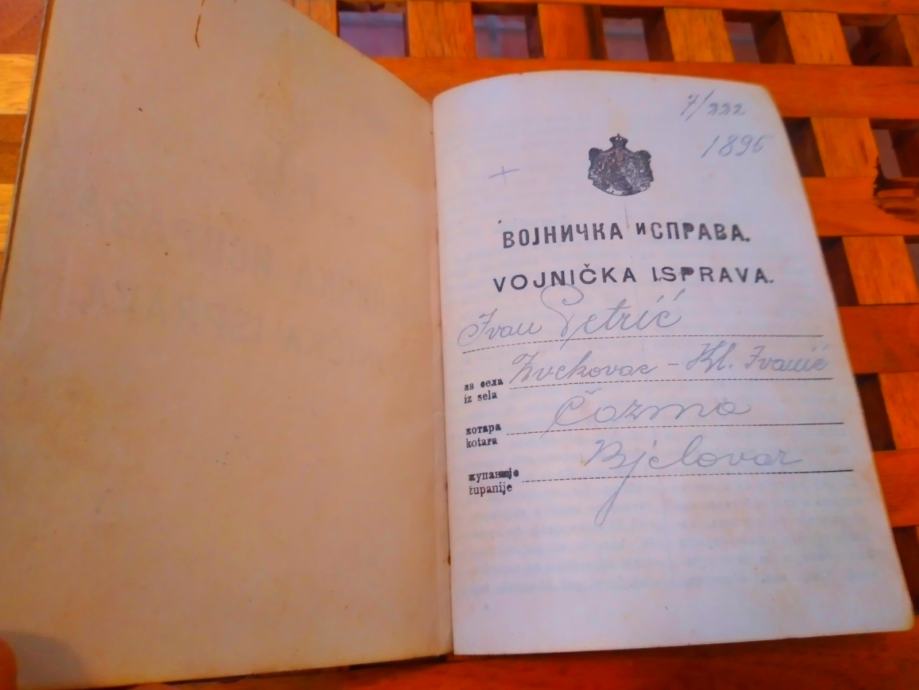 7/222
1896
+
ВОЈНИЧКА ИСПРАВА.
VOJNIČKA ISPRAVA.
Ivan Petrić
из села
iz sela Zvekovac - Kl. Ivanić
котара
kotara Čazma
жупаније
županije Bjelovar